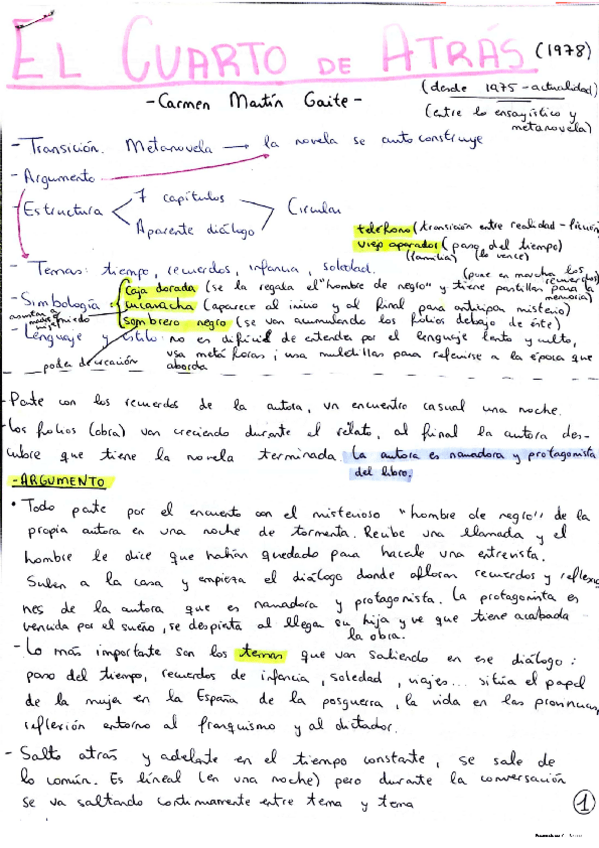 EL CUARTO DE ATRÁS (1978)
- Carmen Martín Gaite -
(desde 1975 - actualidad)
(entre lo ensayístico y
metanovela)
- Transición. Metanovela → la novela se autoconstruye
- Argumento
- Estructura
7 capítulos
Aparente diálogo
Circular
teléfono (transición entre realidad - ficción)
viejo aparador (paso del tiempo)
(familia) (lo vence)
- Temas: tiempo, recuerdos, infancia, soledad.
(pone en marcha los
recuerdos)
- Simbología
caja dorada (se la regala el "hombre de negro" y tiene pastillas para la
memoria)
cucaracha (aparece al inicio y al final para anticipar misterio)
sombrero negro (se van acumulando los folios debajo de éste)
miedo
- Lenguaje y estilo: no es difícil de entender por el lenguaje lento y culto,
usa metáforas; usa muletillas para referirse a la época que
aborda
poder de
- Parte con los recuerdos de la autora, un encuentro casual una noche.
- Los folios (obra) van creciendo durante el relato, al final la autora des-
cubre que tiene la novela terminada. La autora es narradora y protagonista
del libro.
- ARGUMENTO
• Todo parte por el encuentro con el misterioso "hombre de negro" de la
propia autora en una noche de tormenta. Recibe una llamada y el
hombre le dice que habían quedado para hacerle una entrevista.
Suben a la casa y empieza el diálogo donde afloran recuerdos y reflexio
nes de la autora que es narradora y protagonista. La protagonista es
vencida por el sueño, se despierta al llegar su hija y ve que tiene acabada
la obra.
- Lo más importante son los temas que van saliendo en ese diálogo:
paso del tiempo, recuerdos de infancia, soledad, viajes... sitúa el papel
de la mujer en la España de la posguerra, la vida en las provincias,
reflexión entorno al franquismo y al dictador.
- Salto atrás y adelante en el tiempo constante, se sale de
lo común. Es lineal (en una noche) pero durante la conversación
se va saltando continuamente entre tema y tema
1